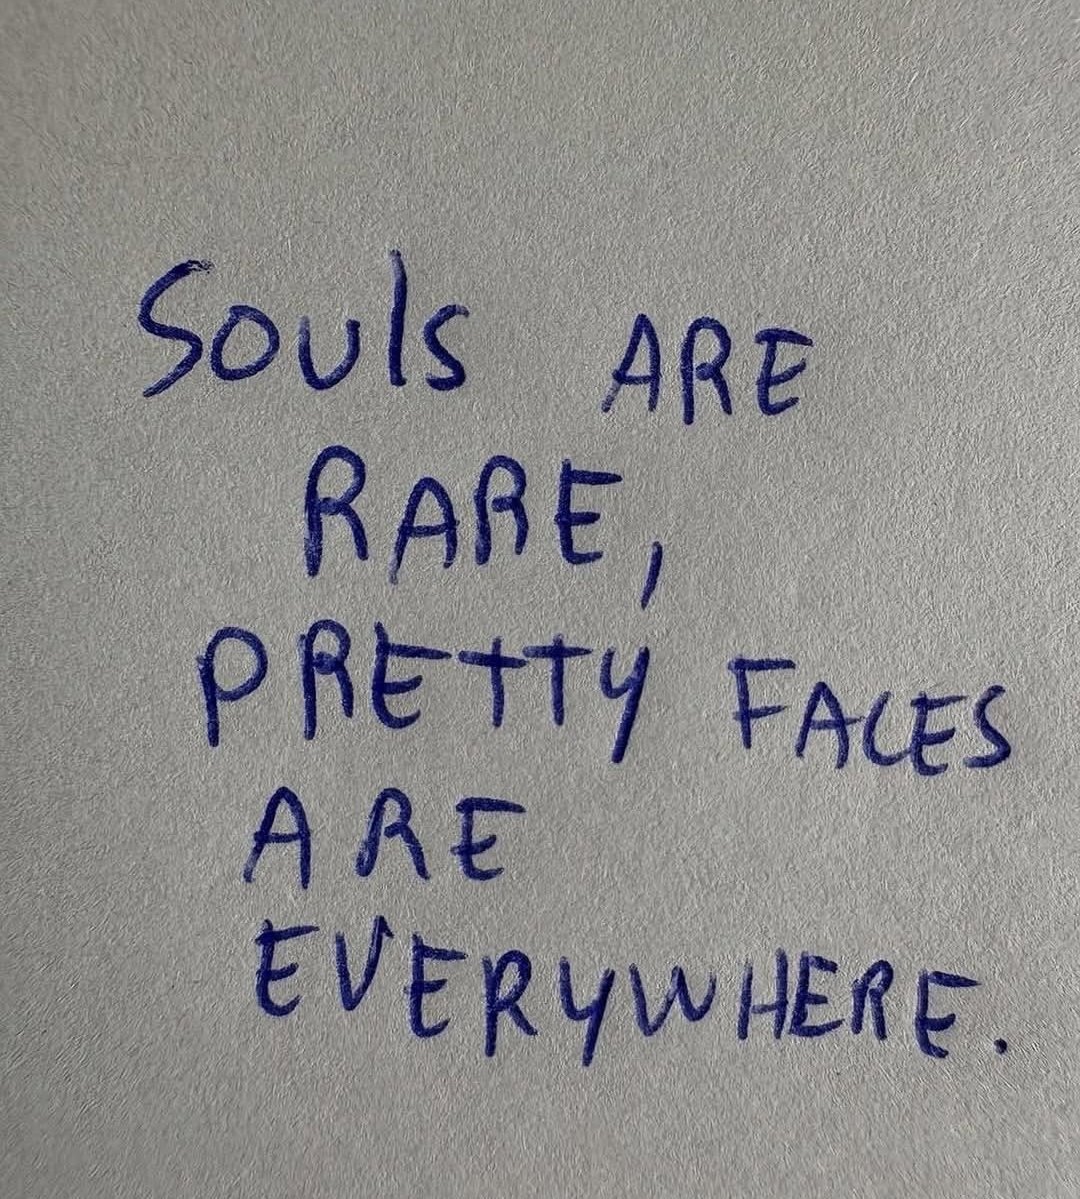 Souls ARE
RARE,
PRETTY FACES
ARE
EVERYWHERE.